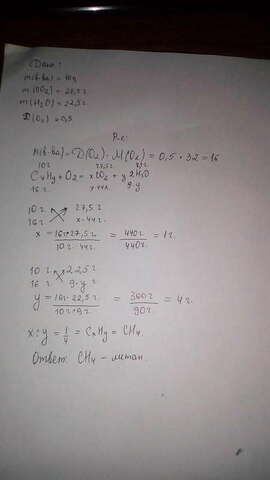 Дано:
m(в-ва) = 10г
m(CO₂) = 27,5 г.
m(H₂O) = 22,5 г.
D(O₂) = 0,5
Р-е:
M(в-ва) = D(O₂) · M(O₂) = 0,5 · 32 = 16
10 г. 27,5 г. 22,5 г.
CxHy + O₂ = xCO₂ + y/2H₂O
16 г. x·44г. 9·y
10 г. 27,5 г.
16 г. x·44г.
x = 16г·27,5г / 10г·44г. = 440г / 440г. = 1г.
10 г. 22,5 г
16 г. 9·y г.
y = 16г·22,5г. / 10г·9г. = 360г / 90г. = 4г.
x : y = 1/4 = CxHy = CH₄.
Ответ: CH₄ – метан.